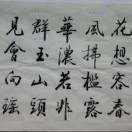 花想容春
風拂檻露
華濃若非
群玉山頭
見會向瑤